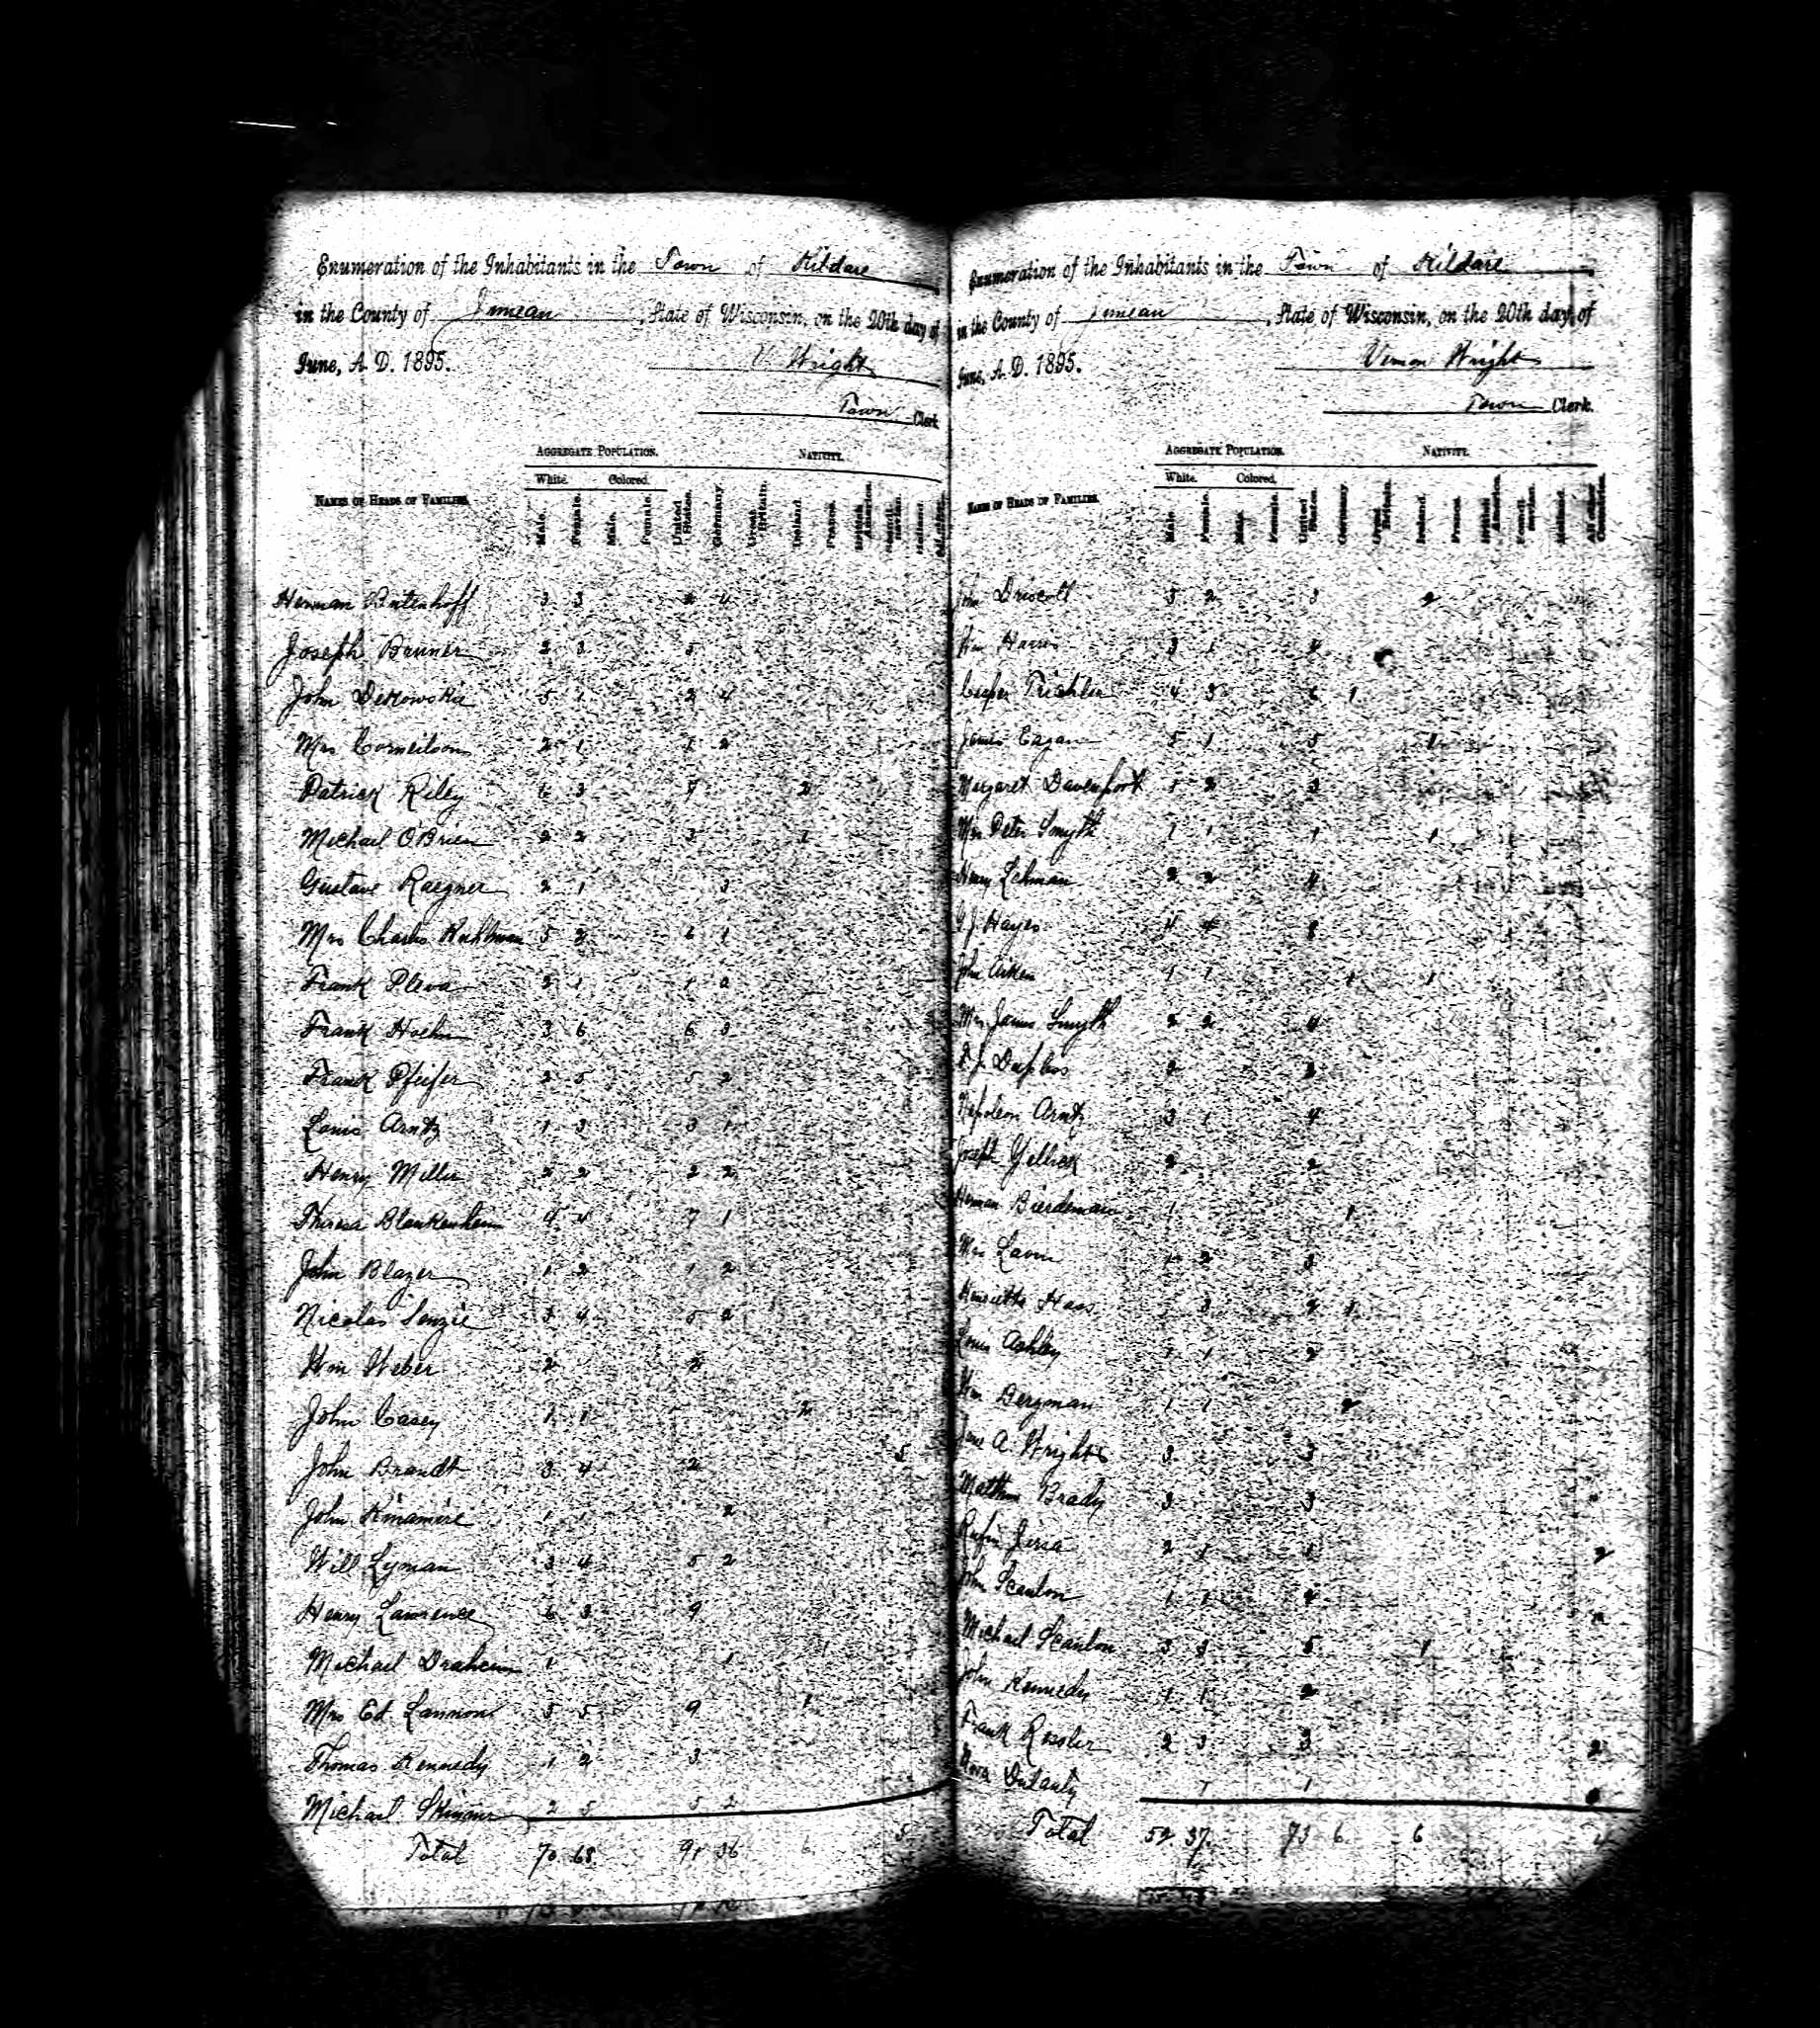 Enumeration of the Inhabitants in the Town of Kildare
in the County of Juneau, State of Wisconsin, on the 20th day of
June, A. D. 1895.
V. Wright
Town Clerk
AGGREGATE POPULATION. NATIVITY.
White. Colored.
NAMES OF HEADS OF FAMILIES. Male. Female. Male. Female. United States. Germany. Great Britain. Ireland. France. British America. Scandinavian. Holland. All other
Herman Butenhoff 3 3 2 4
Joseph Brunner 2 3 5
John 5 1 2 4
Mrs Corneilson 2 1 1 2
Patrick Riley 6 3 7 2
Michael O'Brien 2 2 3 1
Gustave Raegner 2 1 3
Mrs Charles 5 2 6 1
Frank Pleva 2 1 1 2
Frank Hoehn 3 6 6 3
Frank Pfeifer 2 5 5 2
Louis Arntz 1 3 3 1
Henry Miller 2 2 2 2
Theresa Blankenheim 4 4 7 1
John Blazer 1 2 1 2
Nicolas Senzie 3 4 5 2
Wm Weber 2 2
John Casey 1 1 2
John Brandt 3 4 2 5
John 1 1 2
Will Lyman 3 4 5 2
Henry Lawrence 6 3 9
Michael Draheim 1 1
Mrs Ed Lannon 5 5 9 1
Thomas Kennedy 1 2 3
Michael 2 5 5 2
Total 70 68 91 36 6 5
Enumeration of the Inhabitants in the Town of Kildare
in the County of Juneau, State of Wisconsin, on the 20th day of
June, A. D. 1895.
Vernon Wright
Town Clerk.
AGGREGATE POPULATION. NATIVITY.
White. Colored.
NAMES OF HEADS OF FAMILIES. Male. Female. Male. Female. United States. Germany. Great Britain. Ireland. France. British America. Scandinavian. Holland. All other Countries.
John Driscoll 3 2 3 2
Wm Harris 3 1 4
Trichler 4 3 6 1
James Eagan 5 1 5 1
Margaret Davenport 1 2 3
Mrs Peter Smyth 1 1 1 1
Henry Lehman 2 2 4
Hayes 4 4 8
John Aiken 1 1 1 1
Mrs James Smyth 2 2 4
2 2
Napoleon Arntz 3 1 4
Joseph Gellick 2 2
Herman Bierdeman 1 1
Mrs 1 2 3
Henrietta Haas 3 2 1
Louis Ashley 1 1 2
Wm Bergman 1 1 2
A. Wright 3 3
Matthew Brady 3 3
Jirsa 2 1 1 2
John Scanlon 1 1
Michael Scanlon 3 3 5 1
John Kennedy 1 1 2
Frank Ressler 2 3 3 2
Nora Dulanty 1 1
Total 52 37 73 6 6 4